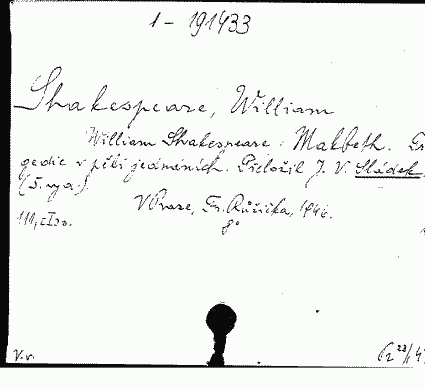 1 - 191433
Shakespeare, William
William Shakespeare: Makbeth. Tr
gedie v pěti jednáních. Přeložil J. V. Sládek.
(5. vyd.)
V Praze, Fr. Růžička, 1946.
8°
111, [1] s.
V.v.
62 23/1 4